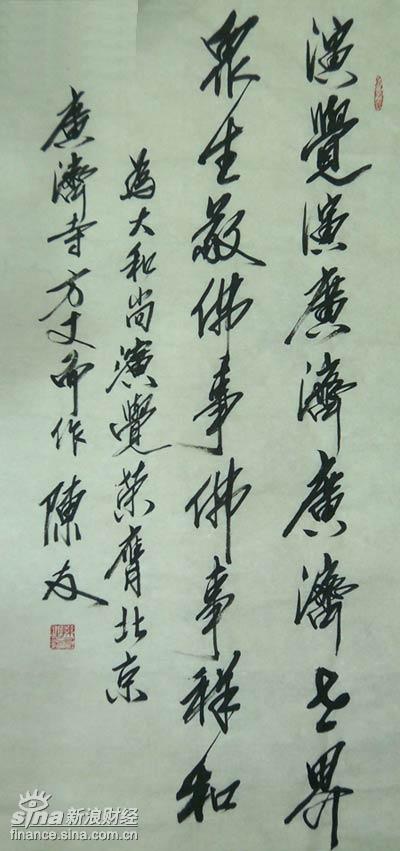 演覺演廣濟廣濟世界
眾生敬佛事佛事祥和
為大和尚演覺榮膺北京
廣濟寺方丈而作 陳友
sina 新浪财经
finance.sina.com.cn